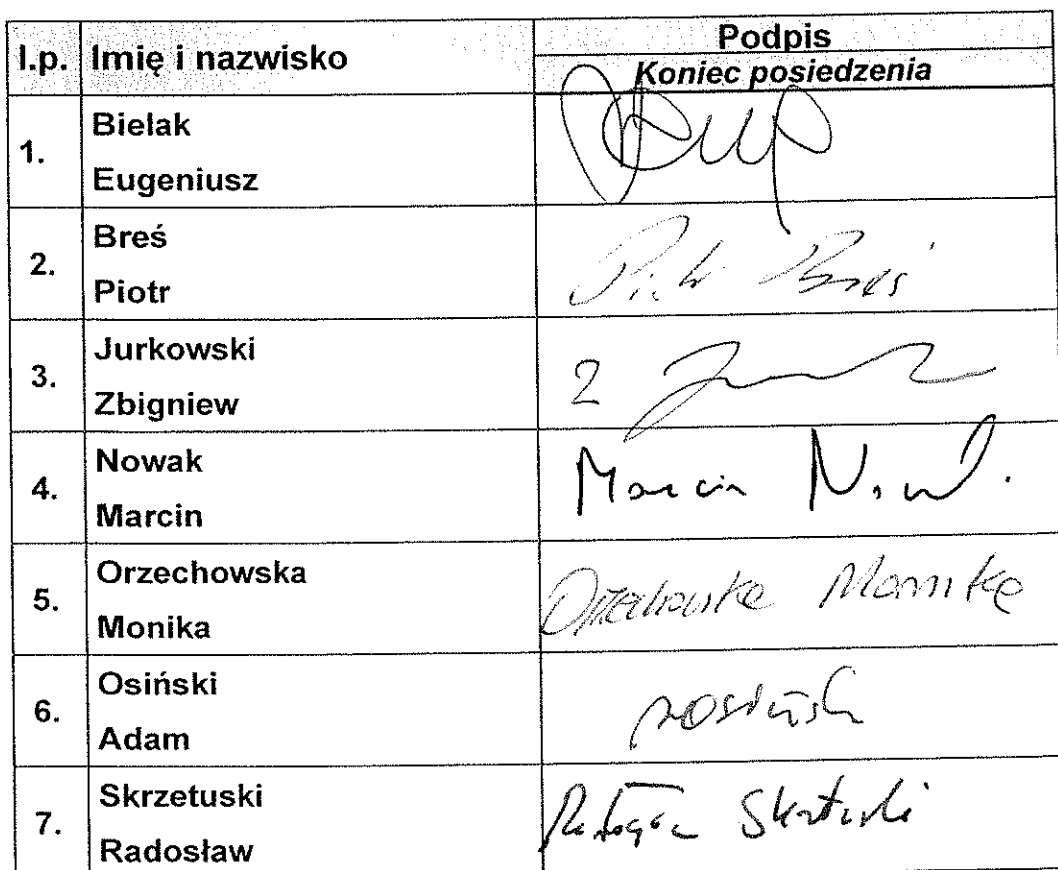 l.p. Imię i nazwisko Podpis
Koniec posiedzenia
1. Bielak
Eugeniusz
2. Breś
Piotr
Piotr Breś
3. Jurkowski
Zbigniew
4. Nowak
Marcin
Marcin Nowak
5. Orzechowska
Monika
Orzechowska Monika
6. Osiński
Adam
AOsiński
7. Skrzetuski
Radosław
Radosław Skrzetuski